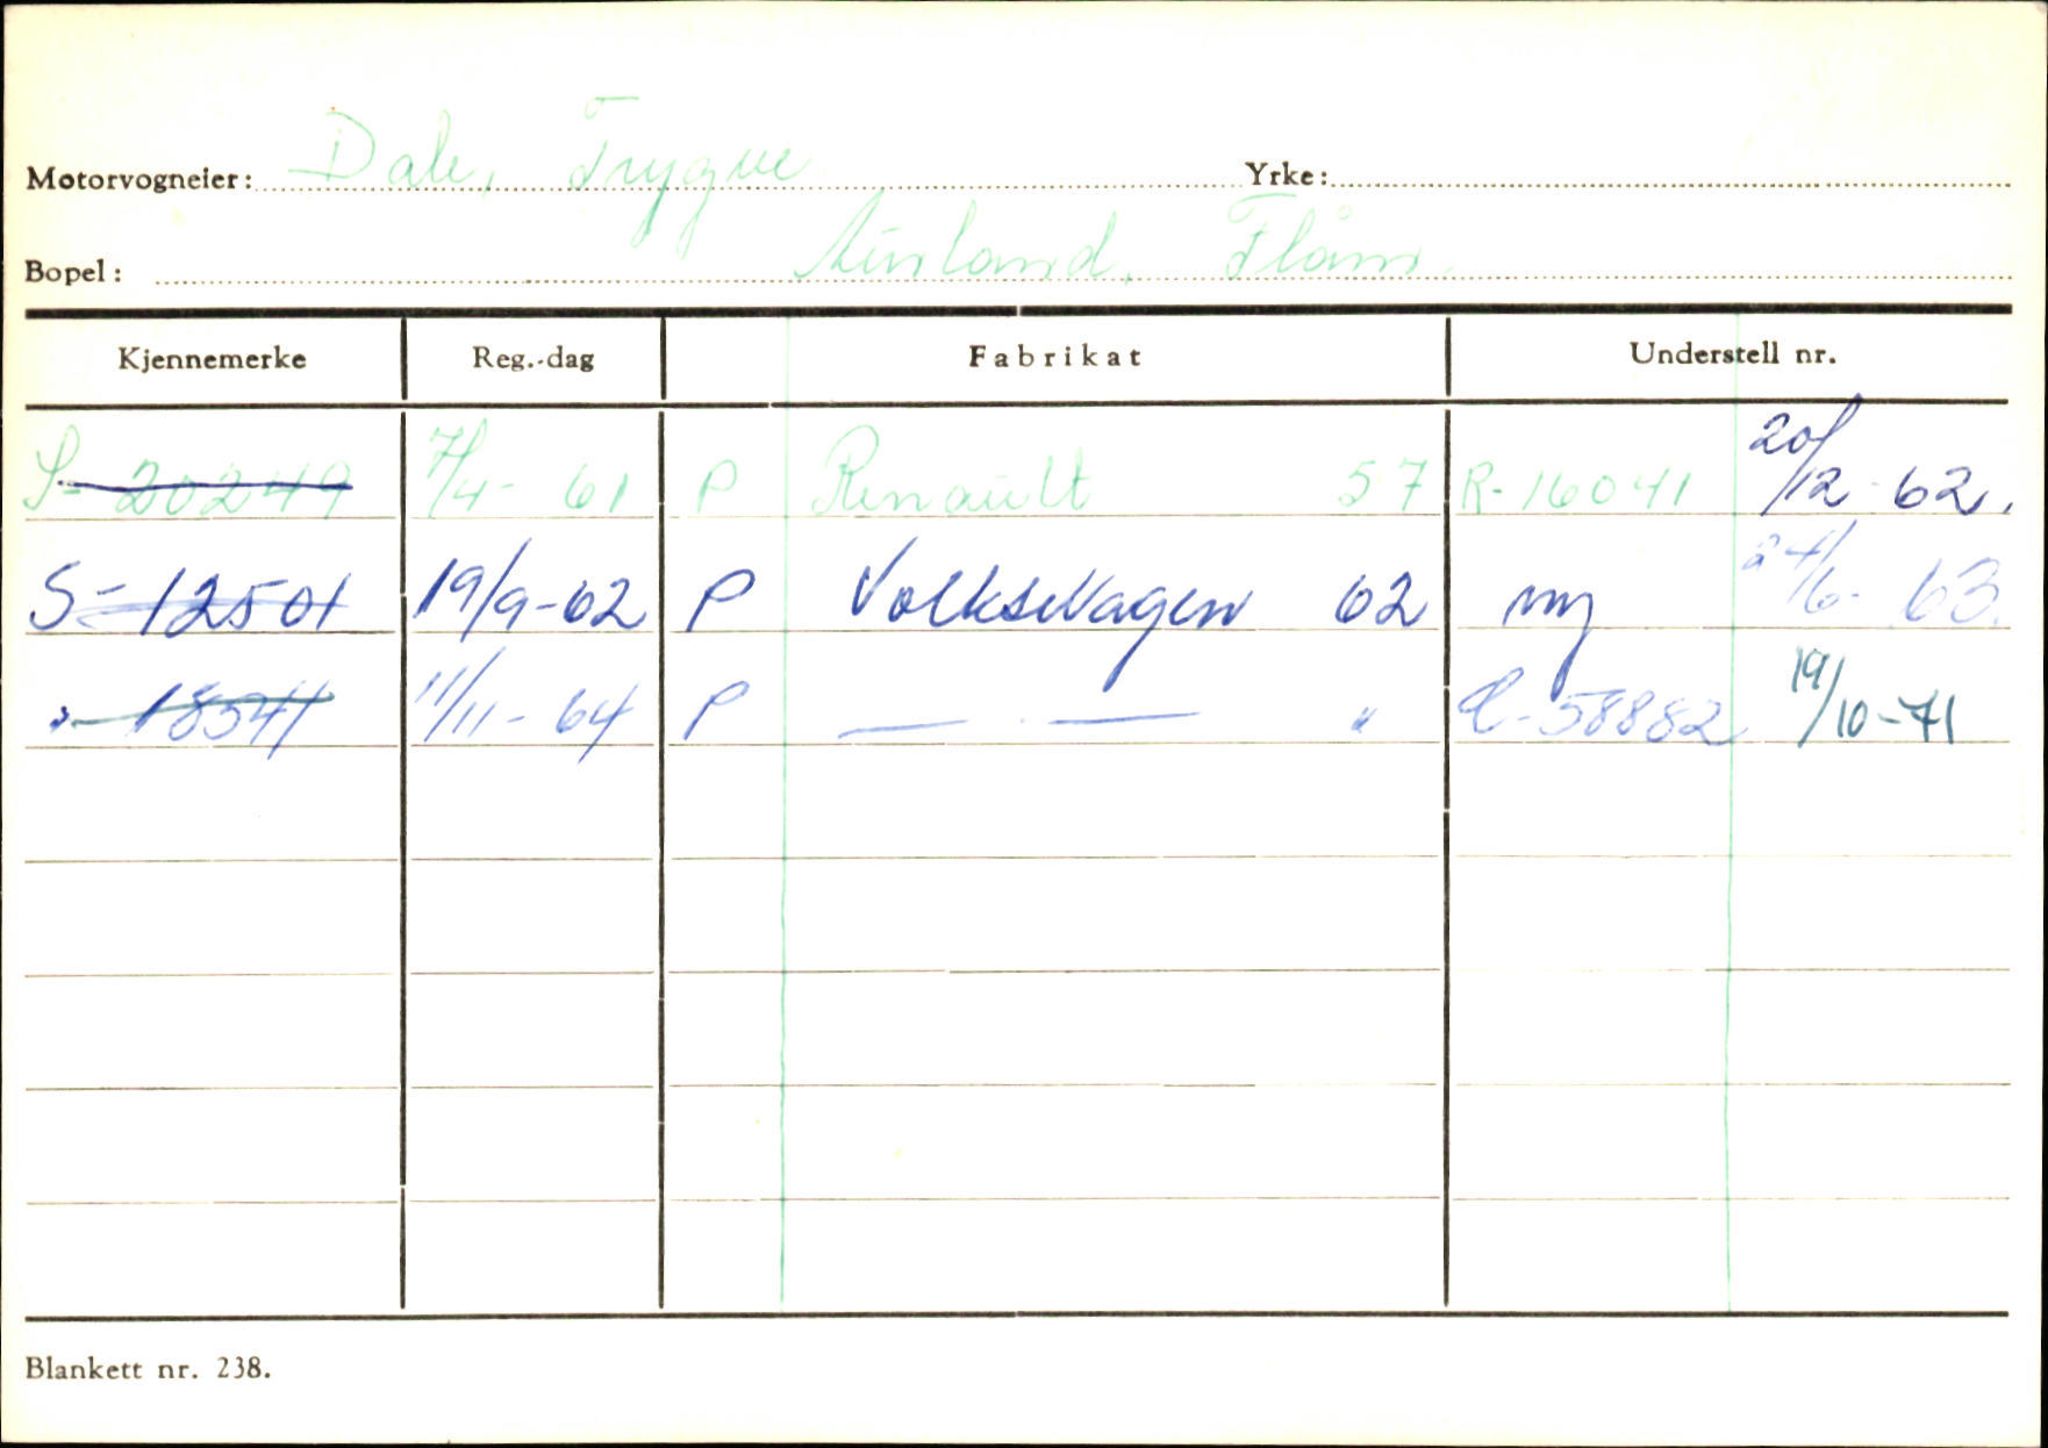 Motorvogneier: Dale, Trygve Yrke:
Bopel: Aurland, Flåm.
Kjennemerke Reg.-dag Fabrikat Understell nr.
S-20249 7/4-61 P Renault 57 R-16041 20/12-62.
S-12501 19/9-62 P VolksWagen 62 ny 24/6-63.
"-18541 11/11-64 P — — " 58882 19/10-71
Blankett nr. 238.